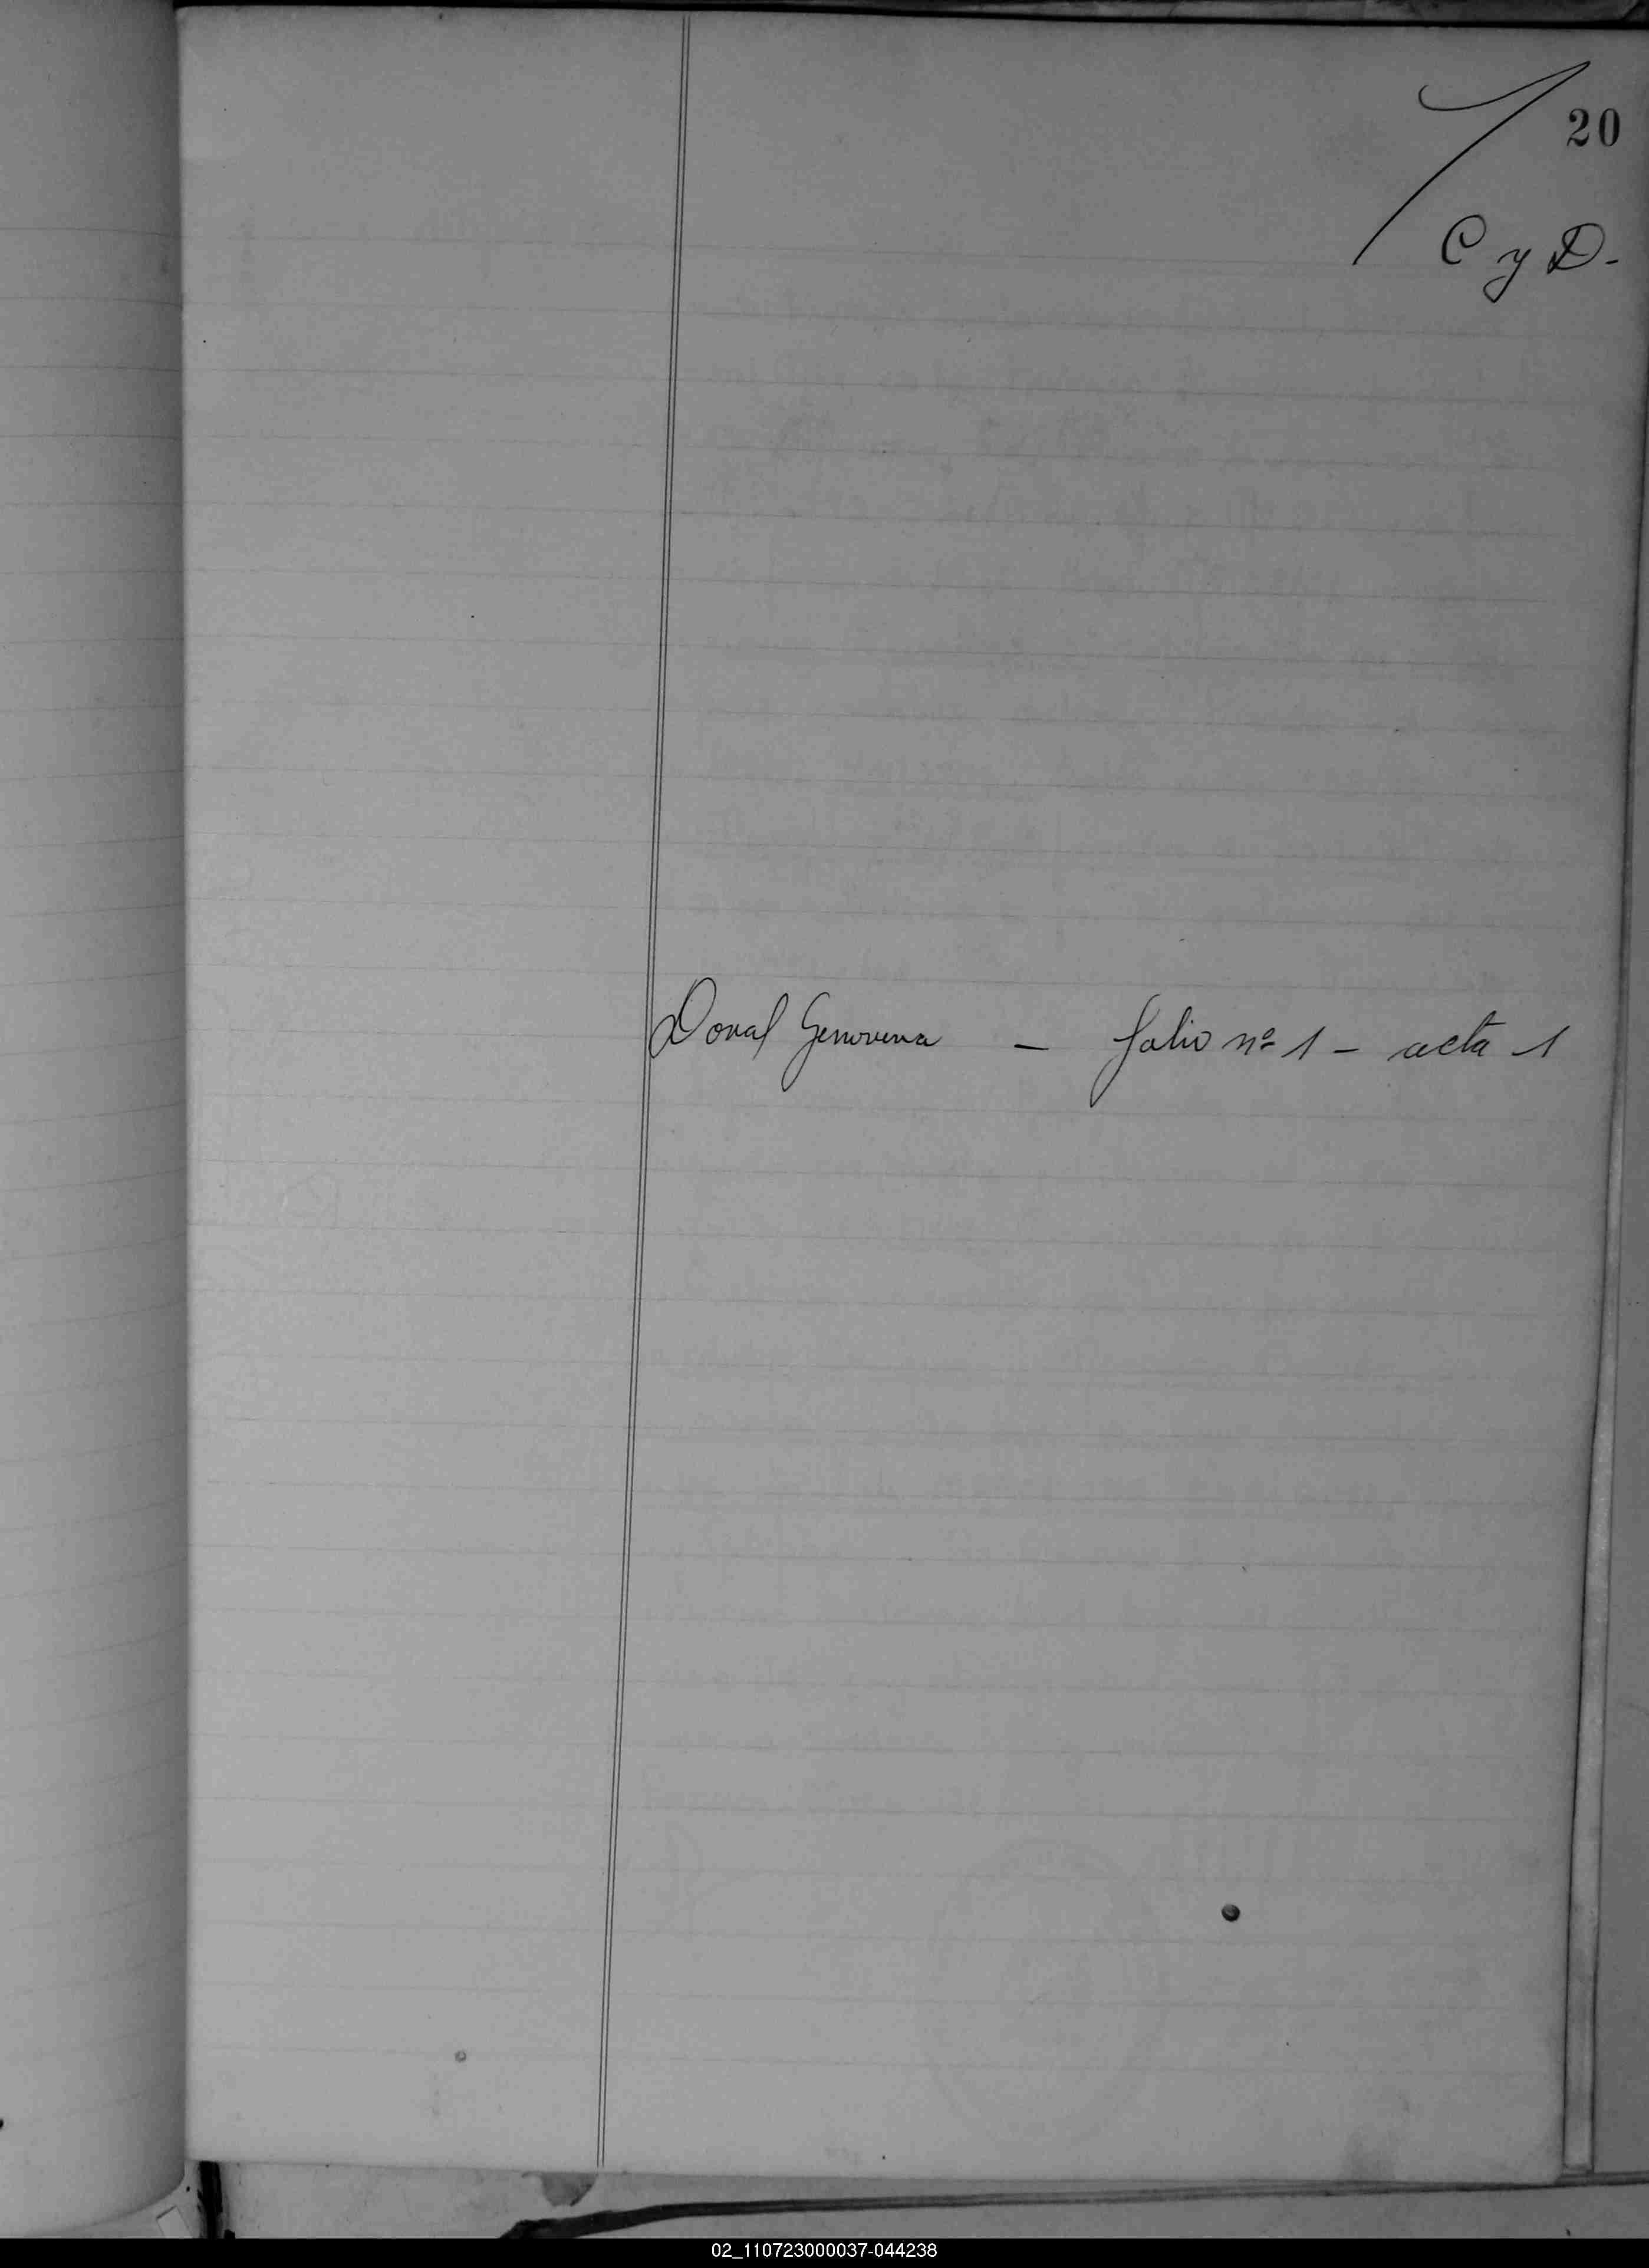 20
C y D.
Doval Genoveva - folio nº 1 - acta 1
02_110723000037-044238